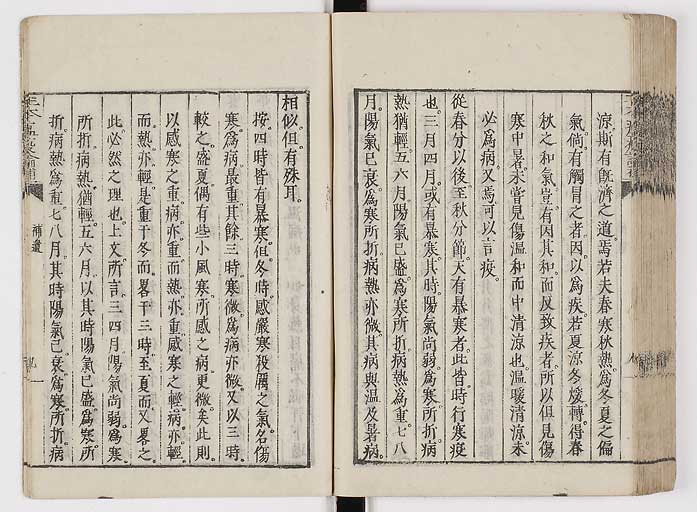 涼斯有既濟之道焉若夫春寒秋熱爲冬夏之偏
氣倘有觸冒之者因以爲疾若夏涼冬煖轉得春
秋之和氣豈有因其和而反致疾者所以但見傷
寒中暑未嘗見傷温和而中清涼也温暖清涼未
必爲病又焉可以言疫
從春分以後至秋分節天有暴寒者此皆時行寒疫
也三月四月或有暴寒其時陽氣尚弱爲寒所折病
熱猶輕五六月陽氣已盛爲寒所折病熱爲重七八
月陽氣已衰爲寒所折病熱亦微其病與温及暑病
相似但有殊耳
按四時皆有暴寒但冬時感嚴寒殺厲之氣名傷
寒爲病最重其餘三時寒微爲病亦微又以三時
較之盛夏偶有些小風寒所感之病更微矣此則
以感寒之重病亦重而熱亦重感寒之輕病亦輕
而熱亦輕是重于冬而畧于三時至夏而又畧之
此必然之理也上文所言三四月陽氣尚弱爲寒
所折病熱猶輕五六月以其時陽氣已盛爲寒所
折病熱爲重七八月其時陽氣已衰爲寒所折病
補遺
九